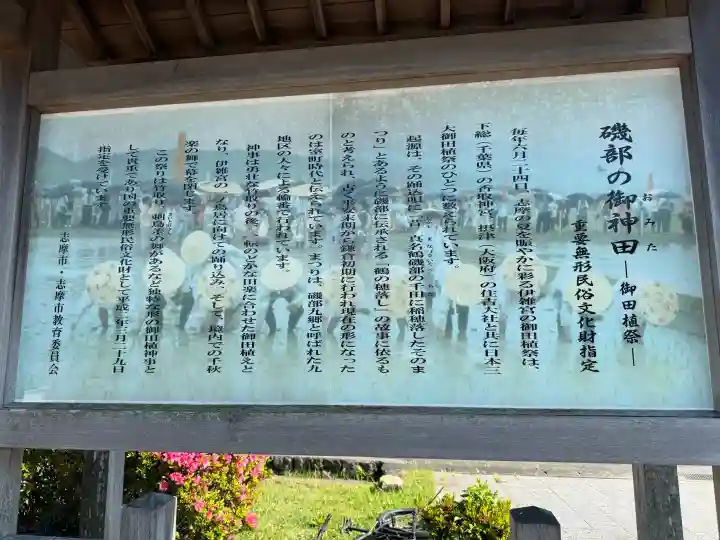 磯部の御神田―御田植祭―
おみた
重要無形民俗文化財指定
毎年六月二十四日、志摩の夏を賑やかに彩る伊雑宮の御田植祭は、
下総（千葉県）の香取神宮、摂津（大阪府）の住吉大社と共に日本三
大御田植祭のひとつに数えられています。
起源は、その踊込唄に「昔、真名鶴磯部の千田に稲穂落したそのま
つり」とあるように磯部に伝承される「鶴の穂落し」の故事に依るも
のと考えられ、古くは平安末期から鎌倉初期に行われ現在の形になった
のは室町時代と伝されています。まつりは、磯部九郷と呼ばれた九
地区の人々による輪番で行われています。
神事は勇壮な竹取りの後、一転のどかな田楽に合わせた御田植えと
なり、伊雑宮の一ノ鳥居に向けての踊り込み、そして、境内での千秋
楽の舞で幕を閉じます。
この祭りは竹取り、刺鳥差の舞があるなど独特な形の御田植神事と
して貴重であり国の重要無形民俗文化財として平成二年三月二十九日
指定を受けています。
志摩市・志摩市教育委員会